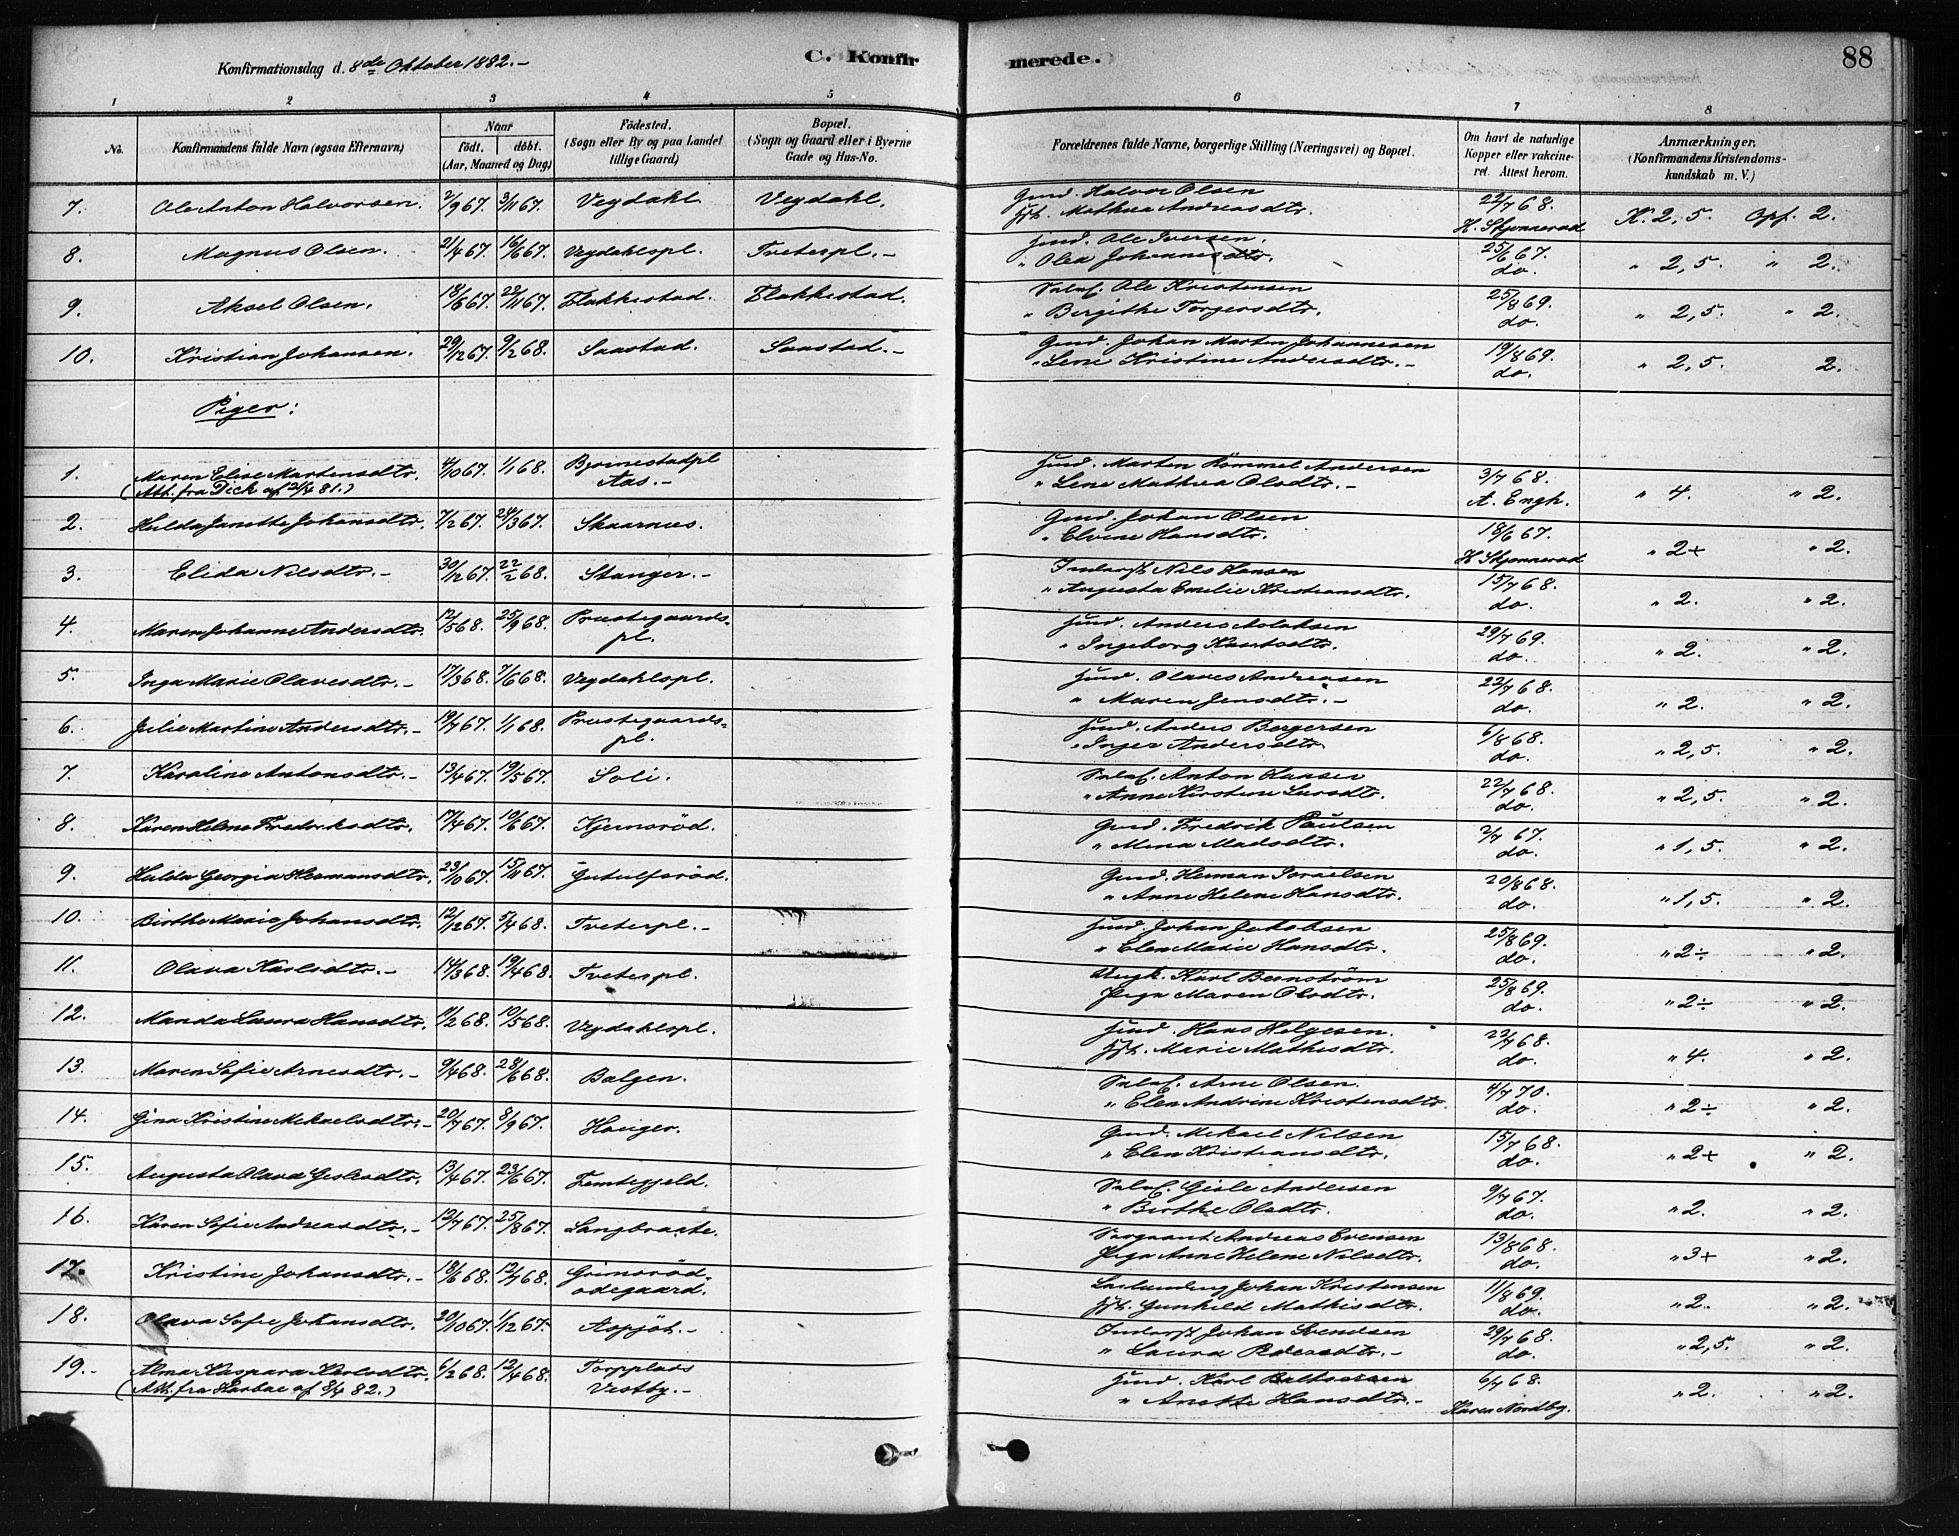 Konfirmationsdag d. 8de Oktober 1882.-
C. Konfirmerede.
88
1 2 3 4 5 6 7 8
No.
Konfirmandens fulde Navn (ogsaa Efternavn)
Naar
födt. döbt.
(Aar, Maaned og Dag)
Födested.
(Sogn eller By og paa Landet
tillige Gaard)
Bopæl.
(Sogn og Gaard eller i Byerne
Gade og Hus-No.
Forældrenes fulde Navne, borgerlige Stilling (Næringsvei) og Bopæl.
Om havt de naturlige
Kopper eller vakcine-
ret. Attest herom.
Anmærkninger.
(Konfirmandens Kristendoms-
kundskab m. V.)
7. Ole Anton Halvorsen. 2/9 67. 3/11 67. Vejdahl Vejdahl. Gmd. Halvor Olsen 22/7 68.
Hst. Mathea Andreasdtr. H. Skjønnerød K. 2,5. Opf. 2.
8. Magnus Olsen. 21/4 67. 16/6 67. Vejdahlspl. Tveterpl.- Hmd. Ole Iversen. 25/6 67.
" Olea Johannesdtr. do. " 2,5. " 2.
9. Aksel Olsen. 18/6 67. 22/11 67. Flakkestad. Flakkestad. Selvf. Ole Kristensen 25/8 69.
" Bergithe Torgersdtr. do. " 2,5. " 2.
10. Kristian Johansen. 29/12 67. 9/2 68. Saastad. Saastad.- Gmd. Johan Martin Johannesen 19/8 69.
" Lene Kristine Andersdtr.- do. " 2,5. 2.
Piger:
1. Maren Elise Martensdtr. 4/10 67. 1/1 68. Bjørnestadpl Hmd. Marten Rømmel Andersen 3/7 68.
(Att. fra Dick af 21/4 81.) Aas.- " Lene Mathea Olsdtr.- A. Engh. " 4. " 2.
2. Hulda Janette Johansdtr. 7/2 67. 24/3 67. Skaarnæs. Gmd. Johan Olsen 18/6 67.
" Elvine Hansdtr. H Skjønnerød " 2+ " 2.
3. Elida Nilsdtr.- 30/12 67. 22/2 68. Stanger.- Inderst Nils Hansen 15/7 68.
" Augusta Emilie Kristiansdtr. do. " 2. " 2.
4. Maren Johanne Andersdtr. 12/5 68. 25/9 68. Præstegaards- Hmd. Anders Aslaksen 29/7 69.
pl. " Ingeborg Knutsdtr. do. " 2. " 2.
5. Inga Marie Olavesdtr.- 17/3 68. 7/6 68. Vejdahlspl. Hmd. Olaves Andreasen 22/7 68.
" Maren Jensdtr.- do. " 2. " 2.
6. Julie Martine Andersdtr.- 19/7 67. 1/1 68. Præstegaards- Hmd. Anders Bergersen 6/8 68.
pl. " Inger Andersdtr. do. " 2,5. " 2.
7. Karoline Antonsdtr.- 13/4 67. 19/5 67. Soli. Selvf. Anton Hansen 22/7 68.
" Anne Kirstine Larsdtr. do. " 2,5. " 2.
8. Karen Helene Fredriksdtr. 17/4 67. 10/6 67. Kjernsrød. Gmd. Fredrik Paulsen 2/7 67.
" Mina Madsdtr. do. " 1,5. " 2.
9. Hulda Georgia Hermansdtr. 23/10 67. 15/11 67. Gutulfsrød. Gmd. Herman Israelsen 20/8 68.
" Anne Helene Hansdtr. do. " 1,5. " 2.
10. Birthe Marie Johansdtr. 12/12 67. 5/4 68. Tveterpl.- Hmd. Johan Jakobsen 25/8 69.
" Elen Marie Hansdtr. do. " 2÷ " 2.
11. Olava Karlsdtr.- 14/3 68. 19/4 68. Tveterpl. Ungk. Karl Bernstrøm 25/8 69.
Piga Maren Olsdtr. do. " 2÷ " 2.
12. Manda Laura Hansdtr. 11/2 68. 10/5 68. Vejdahlspl. Hmd. Hans Helgesen. 22/7 68.
Hst. Marie Mathisdtr. do. " 4. " 2.
13. Maren Sofie Arnesdtr.- 9/4 68. 28/6 68. Balgen. Selvf. Arne Olsen. 4/7 70.
" Elen Andrine Kristensdtr. do. " 2÷ " 2.
14. Gina Kristine Mikaelsdtr.- 20/7 67. 8/9 67. Hauger. Gmd. Mikael Nilsen 15/7 68.
" Elen Kristiansdtr. do. " 2+ " 2.
15. Augusta Olava Gislesdtr. 13/4 67. 23/6 67. Femtegjeld. Selvf. Gisle Andersen 9/7 67.
" Birthe Olsdtr. do. " 2. " 2.
16. Karen Sofie Andreasdtr.- 12/7 67. 25/8 67. Langbraate. Sergeant Andreas Evensen 13/8 68.
Piga Anne Helene Nilsdtr. do. " 3+ " 2.
17. Kristine Johansdtr.- 13/6 68. 12/7 68. Grimsrød- Johan Kristensen 11/8 69.
ødegaard. Hst. Gunhild Mathisdtr. do. " 2. " 2.
18. Olava Sofie Johansdtr. 20/10 67. 1/12 67. Aspjøt.- Inderst Johan Svendsen 29/7 68.
" Laura Pedersdtr.- do. " 2,5. " 2.
19.- Alma Kaspara Karlsdtr. 6/2 68. 12/4 68. Torpplads Hmd. Karl Baltsersen 6/7 68.
(Att. fra Harbae af 8/4 82.) Vestby.- " Anette Hansdtr.- Karen Nordby. " 2. " 2.